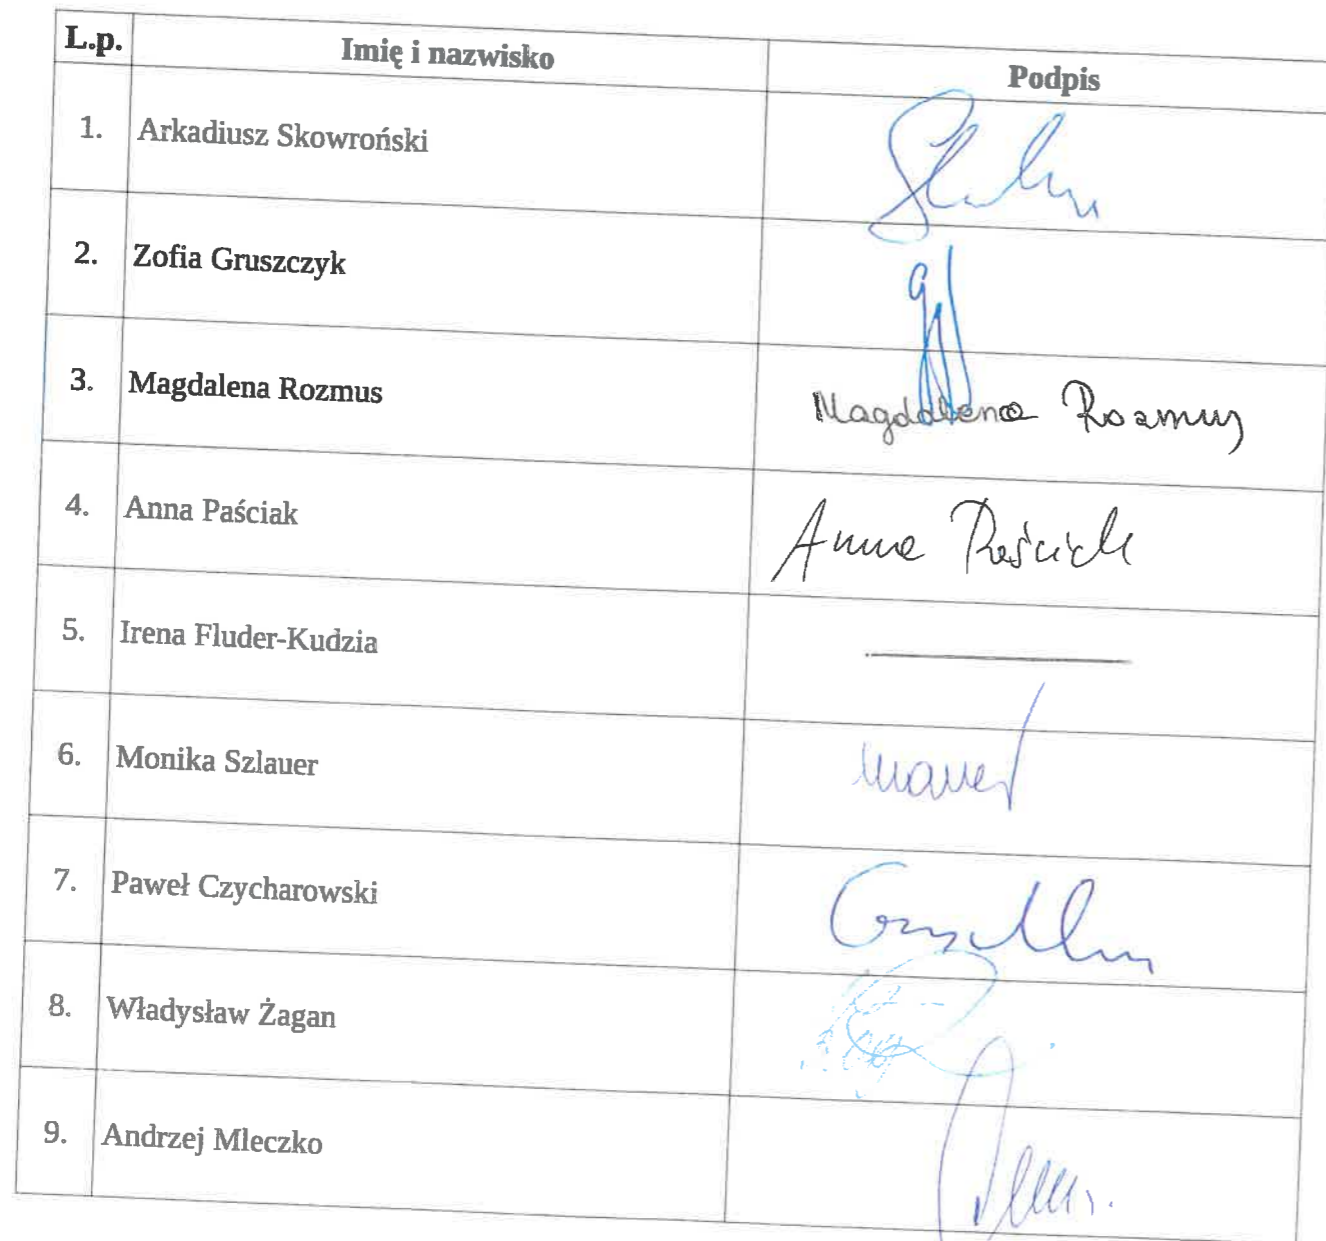 L.p. Imię i nazwisko Podpis
1. Arkadiusz Skowroński
2. Zofia Gruszczyk
3. Magdalena Rozmus Magdalena Rozmus
4. Anna Paściak Anna Paściak
5. Irena Fluder-Kudzia
6. Monika Szlauer
7. Paweł Czycharowski
8. Władysław Żagan
9. Andrzej Mleczko